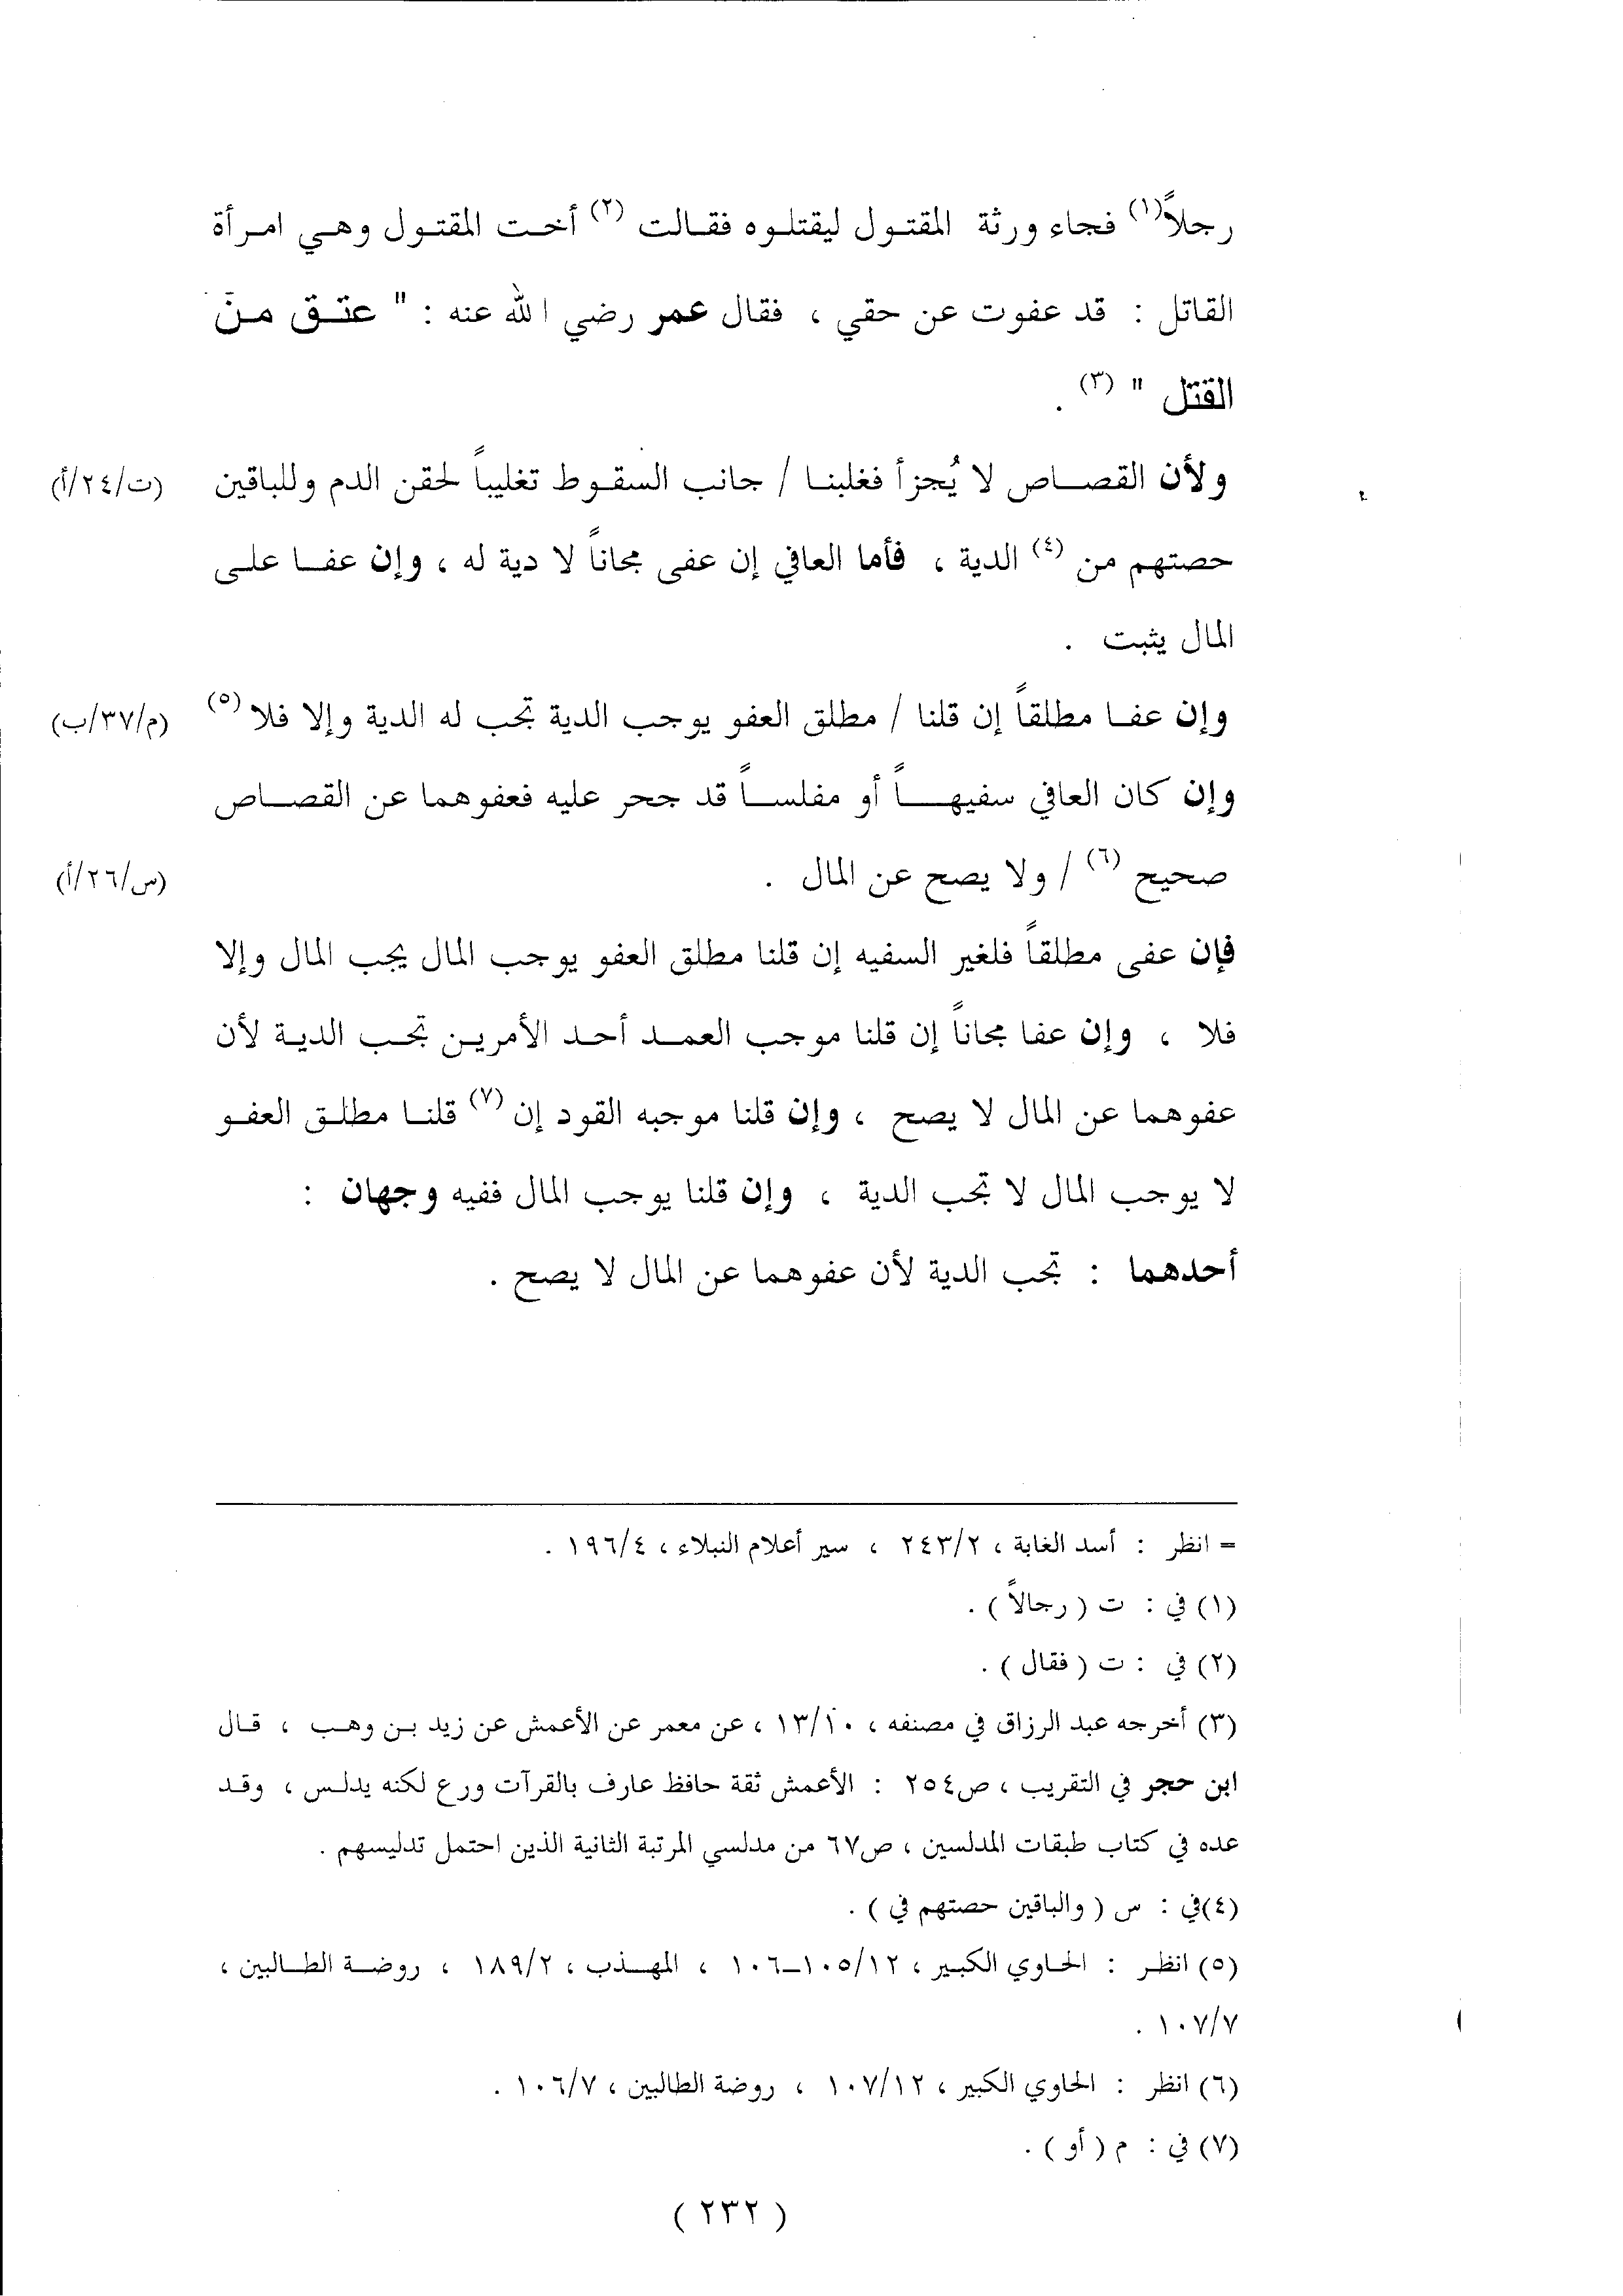 رجلاً(١) فجاء ورثة المقتول ليقتلوه فقالت (٢) أخت المقتول وهي امرأة
القاتل : قد عفوت عن حقي ، فقال عمر رضي الله عنه : " عتق من
القتل " (٣) .
ولأن القصاص لا يُجزأ فغلبنا / جانب السقوط تغليباً لحقن الدم وللباقين (ت/٢٤/أ)
حصتهم من (٤) الدية ، فأما العافي إن عفى مجاناً لا دية له ، وإن عفا على
المال يثبت .
وإن عفا مطلقاً إن قلنا / مطلق العفو يوجب الدية تجب له الدية وإلا فلا (٥) (م/٣٧/ب)
وإن كان العافي سفيهاً أو مفلساً قد حجر عليه فعفوهما عن القصاص
صحيح (٦) / ولا يصح عن المال . (س/٢٦/أ)
فإن عفى مطلقاً فلغير السفيه إن قلنا مطلق العفو يوجب المال يجب المال وإلا
فلا ، وإن عفا مجاناً إن قلنا موجب العمد أحد الأمرين تجب الدية لأن
عفوهما عن المال لا يصح ، وإن قلنا موجبه القود إن (٧) قلنا مطلق العفو
لا يوجب المال لا تجب الدية ، وإن قلنا يوجب المال ففيه وجهان :
أحدهما : تجب الدية لأن عفوهما عن المال لا يصح .
= انظر : أسد الغابة ، ٢٤٣/٢ ، سير أعلام النبلاء ، ١٩٦/٤ .
(١) في : ت ( رجالاً ) .
(٢) في : ت ( فقال ) .
(٣) أخرجه عبد الرزاق في مصنفه ، ١٣/١٠ ، عن معمر عن الأعمش عن زيد بن وهب ، قال
ابن حجر في التقريب ، ص٢٥٤ : الأعمش ثقة حافظ عارف بالقرآت ورع لكنه يدلس ، وقد
عده في كتاب طبقات المدلسين ، ص٦٧ من مدلسي المرتبة الثانية الذين احتمل تدليسهم .
(٤)في : س ( والباقين حصتهم في ) .
(٥) انظر : الحاوي الكبير ، ١٠٥/١٢–١٠٦ ، المهذب ، ١٨٩/٢ ، روضة الطالبين ،
١٠٧/٧ .
(٦) انظر : الحاوي الكبير ، ١٠٧/١٢ ، روضة الطالبين ، ١٠٦/٧ .
(٧) في : م ( أو ) .
( ٢٣٢ )